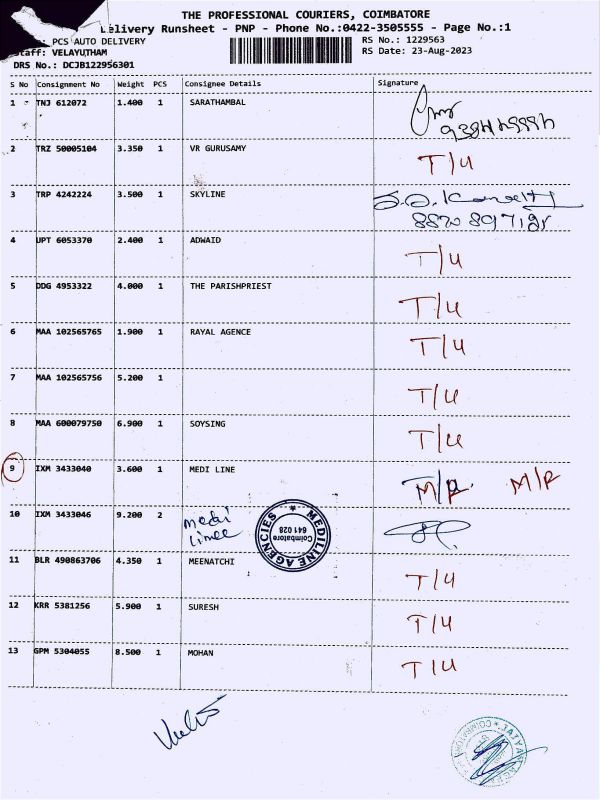 THE PROFESSIONAL COURIERS, COIMBATORE
Delivery Runsheet - PNP - Phone No.:0422-3505555 - Page No.:1
: PCS AUTO DELIVERY
Staff: VELAYUTHAM
DRS No.: DCJB122956301
RS No.: 1229563
RS Date: 23-Aug-2023
S No Consignment No Weight PCS Consignee Details Signature
1 TNJ 612072 1.400 1 SARATHAMBAL
2 TRZ 50005104 3.350 1 VR GURUSAMY T/U
3 TRP 4242224 3.500 1 SKYLINE
4 UPT 6053370 2.400 1 ADWAID T/U
5 DDG 4953322 4.000 1 THE PARISHPRIEST T/U
6 MAA 102565765 1.900 1 RAYAL AGENCE T/U
7 MAA 102565756 5.200 1 T/U
8 MAA 600079750 6.900 1 SOYSING T/U
9 IXM 3433040 3.600 1 MEDI LINE M/R M/R
10 IXM 3433046 9.200 2 medi
MEDILINE AGENCIES
Coimbatore
641 028
11 BLR 490863706 4.350 1 MEENATCHI T/U
12 KRR 5381256 5.900 1 SURESH T/U
13 GPM 5304055 8.500 1 MOHAN T/U